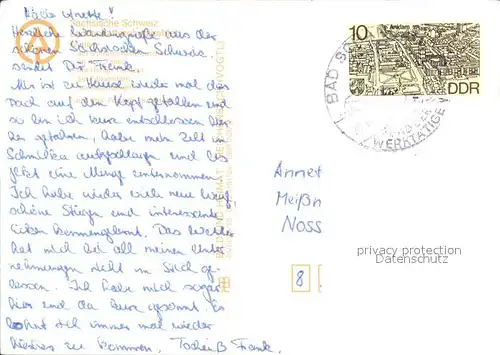 Hallo Anette!
Herzliche Wandergrüße aus der
schönen Sächsischen Schweiz
sendet Dir Frank.
Mir ist zu Hause wieder mal das
Dach auf den Kopf gefallen und
so bin ich kurz entschlossen hier
her gefahren, habe mein Zelt in
Schmilka aufgeschlagen und bis
jetzt eine Menge unternommen.
Ich habe wieder viele neue Wege,
schöne Stiegen und interessante
kennengelernt. Das Wetter
hat mich bei all meinen Unter-
nehmungen nicht im Stich ge-
lassen. Ich habe mich sogar
hier und da kurz gesonnt. Es
lohnt sich immer mal wieder
hierher zu kommen. Tschüß Frank.
Sächsische Schweiz
BILD UND HEIMAT REICHENBACH (VOGTL)
10
DDR
BAD SC
WERKTÄTIGE
Annet
Meißn
Noss
privacy protection
Datenschutz
8